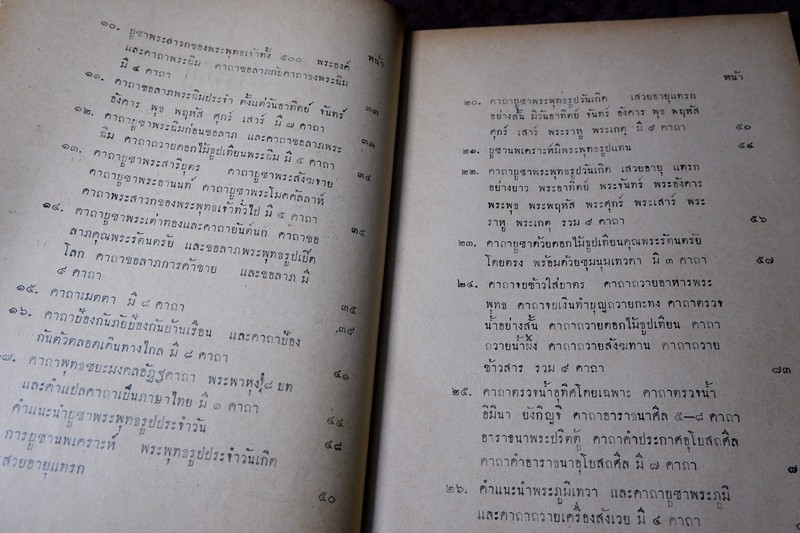 หน้า
๑๐. บูชาพระสาวกของพระพุทธเจ้าทั้ง ๕๐๐ พระองค์
และคาถาพระฉิม คาถาขอลาภกับคาถาของพระฉิม
มี ๔ คาถา ๓๓
๑๑. คาถาขอลาภพระฉิมประจำ ตั้งแต่วันอาทิตย์ จันทร์
อังคาร พุธ พฤหัส ศุกร์ เสาร์ มี ๗ คาถา ๓๓
๑๒. คาถาบูชาพระฉิมก่อนขอลาภ และคาถาขอลาภพระ
ฉิม คาถาถวายดอกไม้ธูปเทียนพระฉิม มี ๕ คาถา ๓๔
๑๓. คาถาบูชาพระสารีบุตร คาถาบูชาพระสังฆจาย
คาถาบูชาพระอานนท์ คาถาบูชาพระโมคคัลลาห์
คาถาพระสาวกของพระพุทธเจ้าทั่วไป มี ๕ คาถา ๓๕
๑๔. คาถาบูชาพระเต่าทองและคาถายันต์นก คาถาขอ
ลาภคุณพระรัตนตรัย และขอลาภพระพุทธรูปเปิด
โลก คาถาขอลาภการค้าขาย และขอลาภ มี
๙ คาถา ๓๕
๑๕. คาถาเมตตา มี ๘ คาถา ๓๙
๑๖. คาถาป้องกันภัยป้องกันบ้านเรือน และคาถาป้อง
กันตัวตลอดเดินทางไกล มี ๘ คาถา ๔๑
๗. คาถาพุทธชยะมงคลอัฏฐคาถา พระพาหุง ๘ บท
และคำแปลคาถาเป็นภาษาไทย มี ๑ คาถา ๔๔
คำแนะนำบูชาพระพุทธรูปประจำวัน ๔๘
การบูชานพเคราะห์ พระพุทธรูปประจำวันเกิด
เสวยอายุแทรก ๕๐
หน้า
๒๐. คาถาบูชาพระพุทธรูปวันเกิด เสวยอายุแทรก
อย่างสั้น มีวันอาทิตย์ จันทร์ อังคาร พุธ พฤหัส
ศุกร์ เสาร์ พระราหู พระเกตุ มี ๙ คาถา ๕๐
๒๑. บูชานพเคราะห์มีพระพุทธรูปแทน ๕๔
๒๒. คาถาบูชาพระพุทธรูปวันเกิด เสวยอายุ แทรก
อย่างยาว พระอาทิตย์ พระจันทร์ พระอังคาร
พระพุธ พระพฤหัส พระศุกร์ พระเสาร์ พระ
ราหู พระเกตุ รวม ๙ คาถา ๕๖
๒๓. คาถาบูชาด้วยดอกไม้ธูปเทียนคุณพระรัตนตรัย
โดยตรง พร้อมด้วยชุมนุมเทวดา มี ๓ คาถา ๕๗
๒๔. คาถาจบข้าวใส่บาตร คาถาถวายอาหารพระ
พุทธ คาถาจบเงินทำบุญถวายกะทง คาถาตรวจ
น้ำอย่างสั้น คาถาถวายดอกไม้ธูปเทียน คาถา
ถวายน้ำผึ้ง คาถาถวายสังฆทาน คาถาถวาย
ข้าวสาร รวม ๙ คาถา ๗๓
๒๕. คาถาตรวจน้ำอุทิศโดยเฉพาะ คาถาตรวจน้ำ
อิมินา ยังกิญจิ คาถาอาราธนาศีล ๕—๘ คาถา
อาราธนาพระปริตตู้ คาถาคำประกาศอุโบสถศีล
คาถาคำอาราธนาอุโบสถศีล มี ๗ คาถา
๒๖. คำแนะนำพระภูมิเทวา และคาถาบูชาพระภูมิ
และคาถาถวายเครื่องสังเวย มี ๔ คาถา